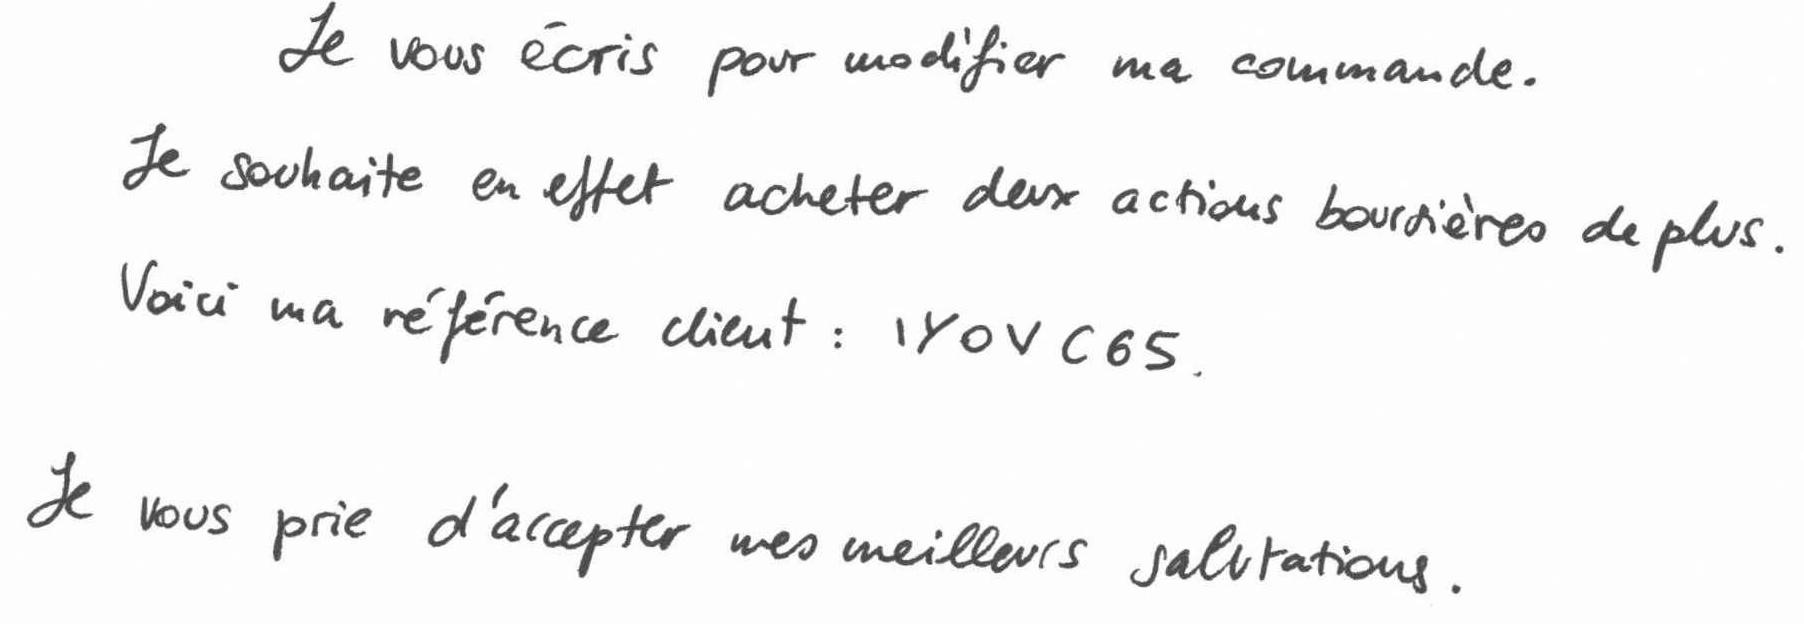 Je vous écris pour modifier ma commande.
Je souhaite en effet acheter deux actions boursières de plus.
Voici ma référence client : 1YOVC65.
Je vous prie d'accepter mes meilleurs salutations.